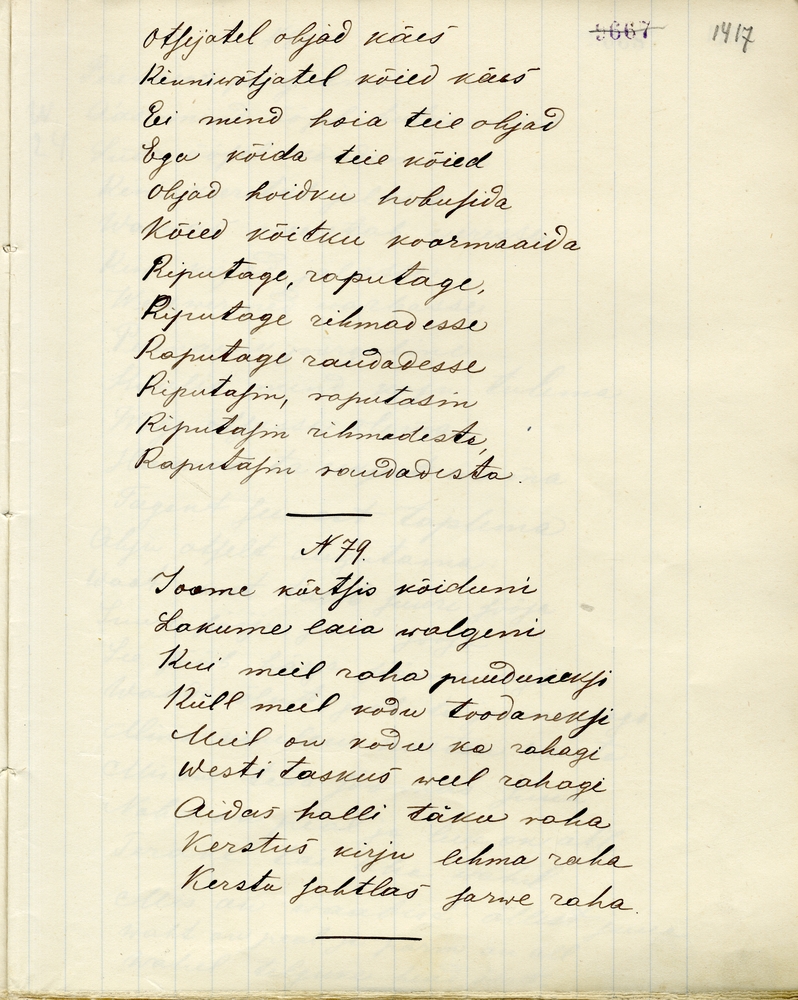 9667 1417
Otsijatel ohjad käes
Kinniwõtjatel kõied käes
Ei mind hoia teie ohjad
Ega kõida teie kõied
Ohjad hoidku hobusida
Kõied kõitku koormaaida
Riputage, raputage,
Riputage rihmadesse
Raputage raudadesse
Riputasin, raputasin
Riputasin rihmadesta,
Raputasin raudadesta.
N 79.
Joome körtsis kõiduni
Lakume laia walgeni
Kui meil raha puuduneksi
Küll meil kodu toodaneksi
Meil on kodu ka rahagi
Westi taskus weel rahagi
Aidas halli täku raha
Kerstus kirju lehma raha
Kersta sahtlas sarwe raha.